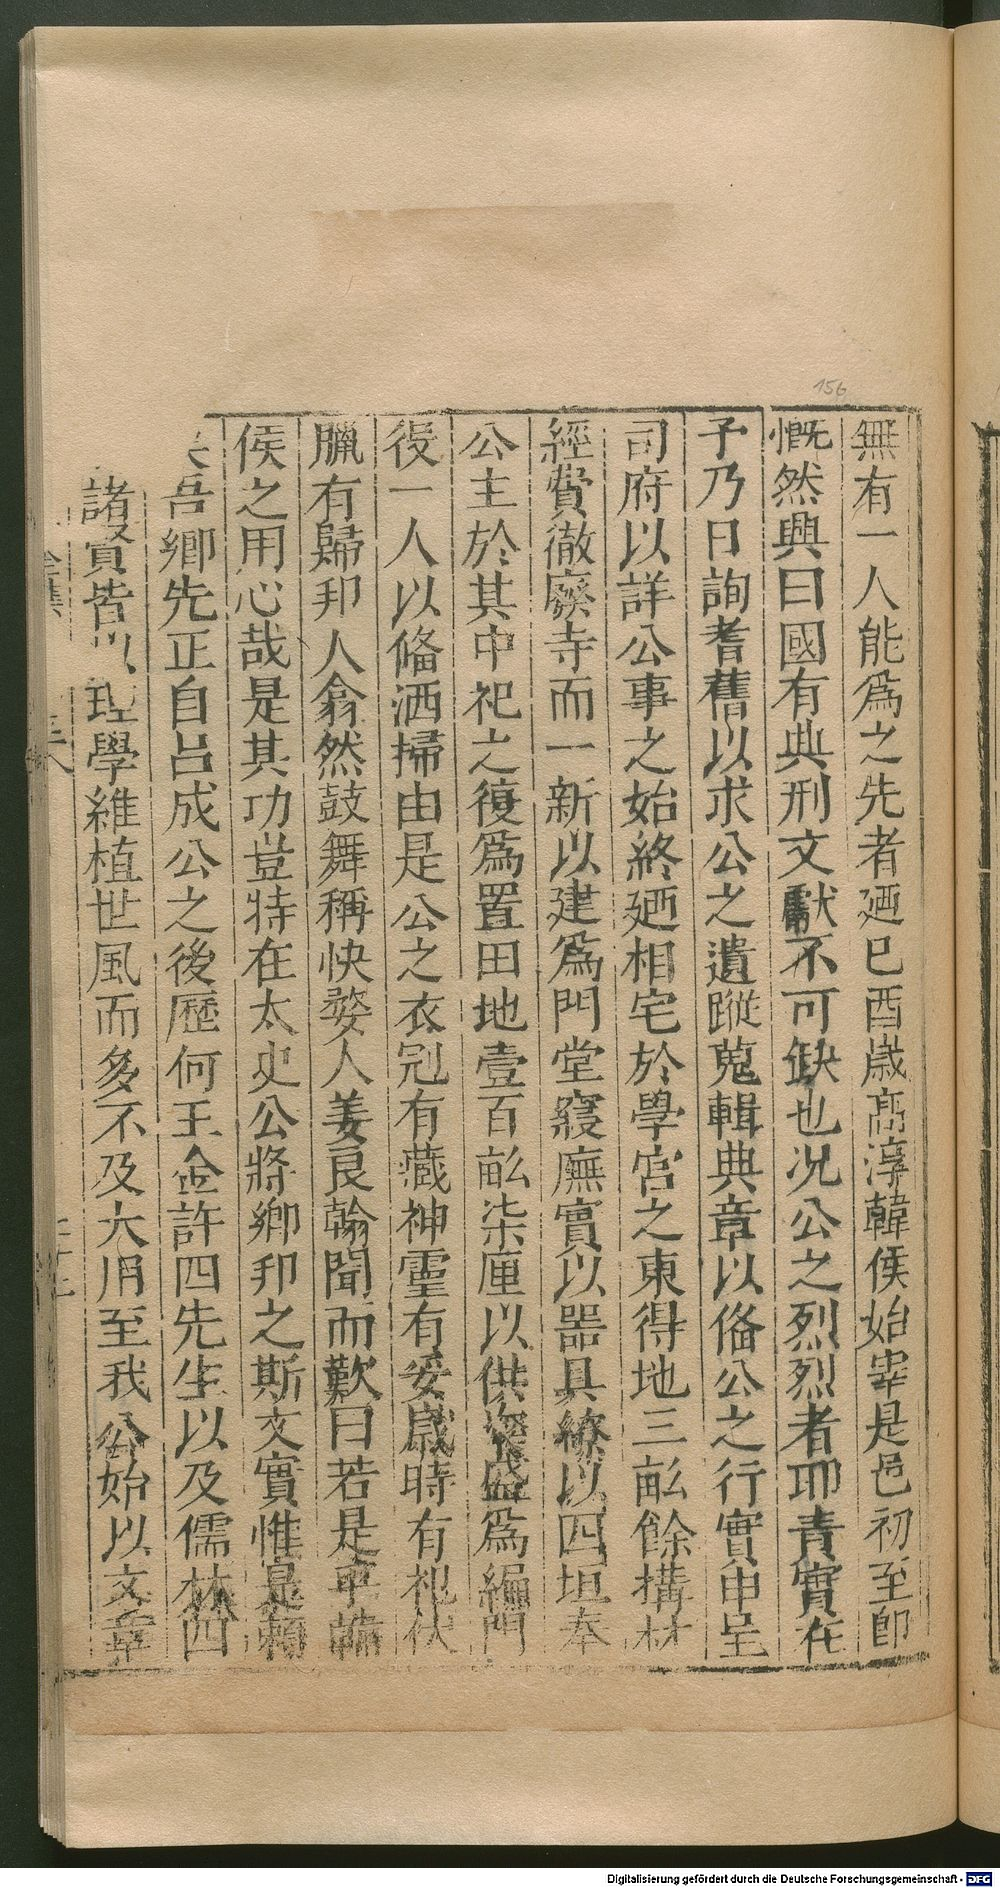 無有一人能爲之先者廼巳酉歲高淳韓侯始宰是邑初至卽
慨然興曰國有典刑文獻不可缺也况公之烈烈者耶責實在
予乃日詢耆舊以求公之遺蹤蒐輯典章以俻公之行實申呈
司府以詳公事之始終廼相宅於學宮之東得地三畝餘搆材
經費徹廢寺而一新以建爲門堂寢廡實以器具繚以四垣奉
公主於其中祀之復爲置田地壹百畝柒厘以供粢盛爲編門
役一人以俻洒掃由是公之衣冠有藏神靈有妥歲時有祀伏
臘有歸邦人翕然鼓舞稱快婺人姜良翰聞而歎曰若是乎韓
侯之用心哉是其功豈特在太史公將鄉邦之斯文實惟是賴
吾鄉先正自呂成公之後歷何王金許四先生以及儒林四
諸賢皆以理學維植世風而多不及大用至我公始以文章
156
Digitalisierung gefördert durch die Deutsche Forschungsgemeinschaft - DFG